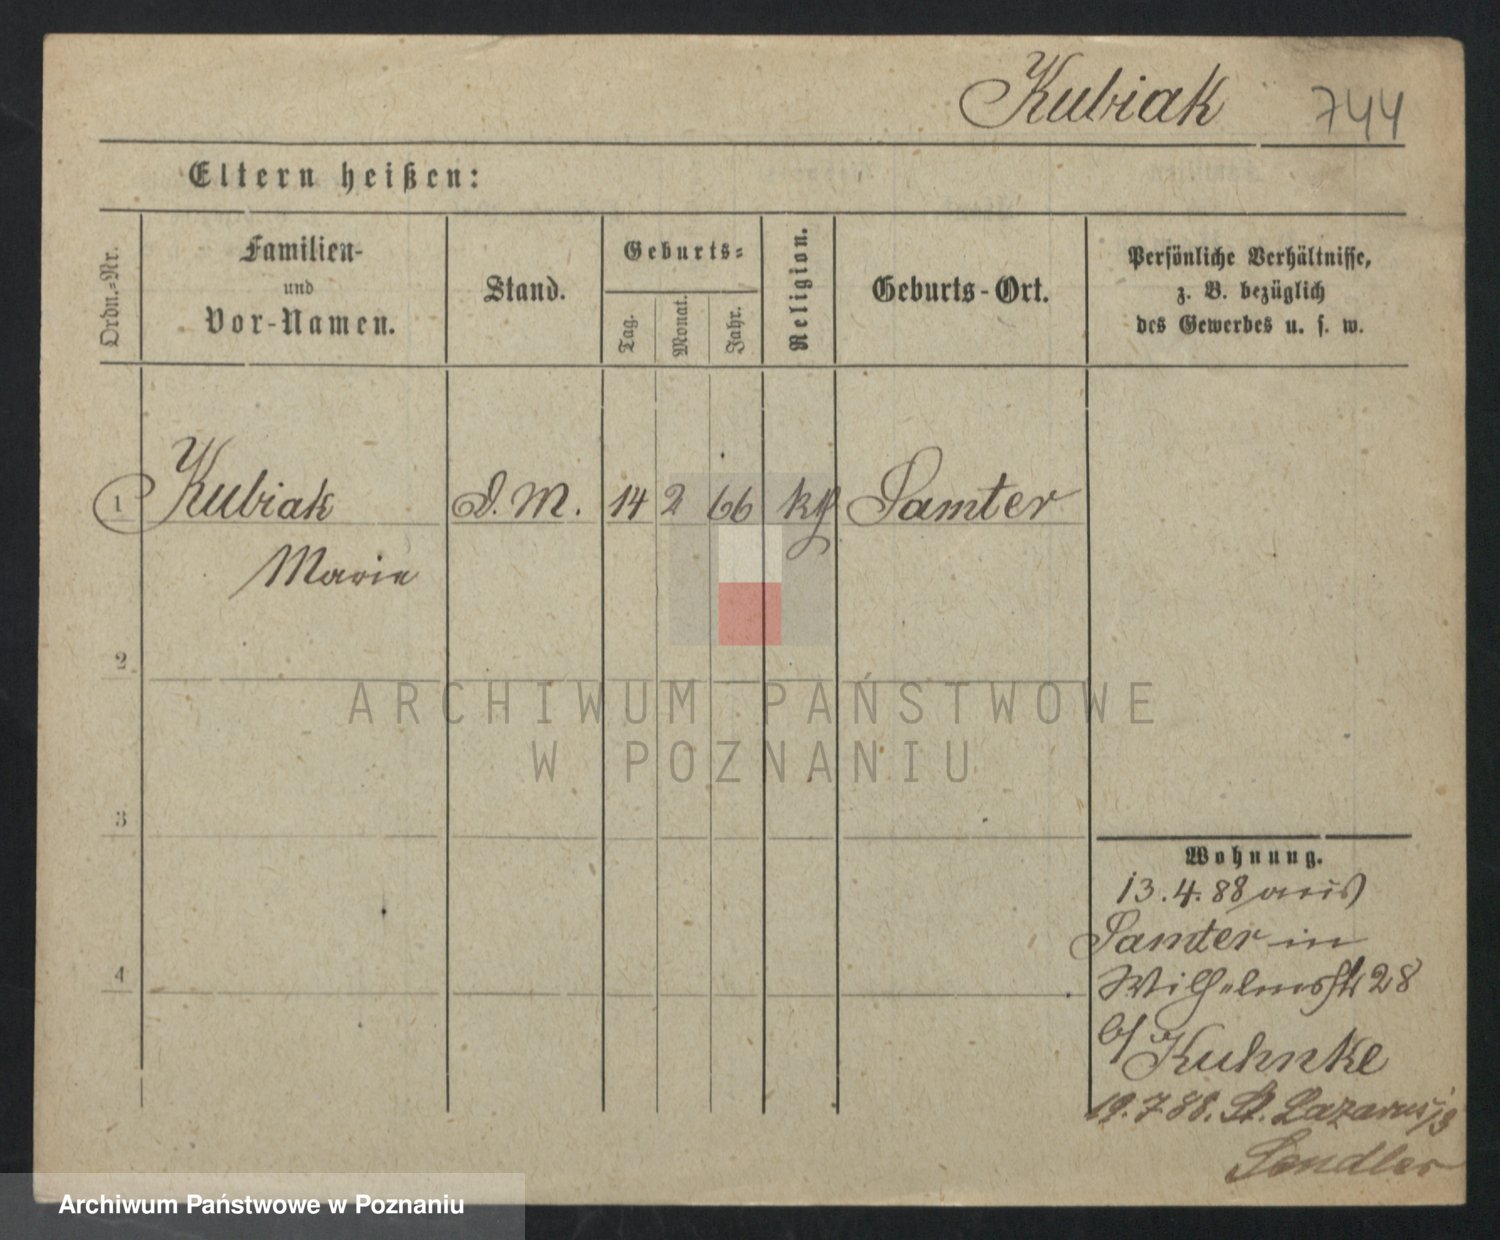 Kubiak 744
Eltern heißen:
Ordn.-Nr.
Familien-
und
Vor-Namen.
Stand.
Geburts-
Tag.
Monat.
Jahr.
Religion.
Geburts-Ort.
Persönliche Verhältnisse,
z. B. bezüglich
des Gewerbes u. s. w.
1 Kubiak D. M. 14 2 66 kth Samter
Marie
2
3
4
Wohnung.
13.4.88 aus
Samter in
Wilhelmsstr 28
b/ Kuhnke
19.7.88. St. Lazarus
Sendler
ARCHIWUM PAŃSTWOWE
W POZNANIU
Archiwum Państwowe w Poznaniu